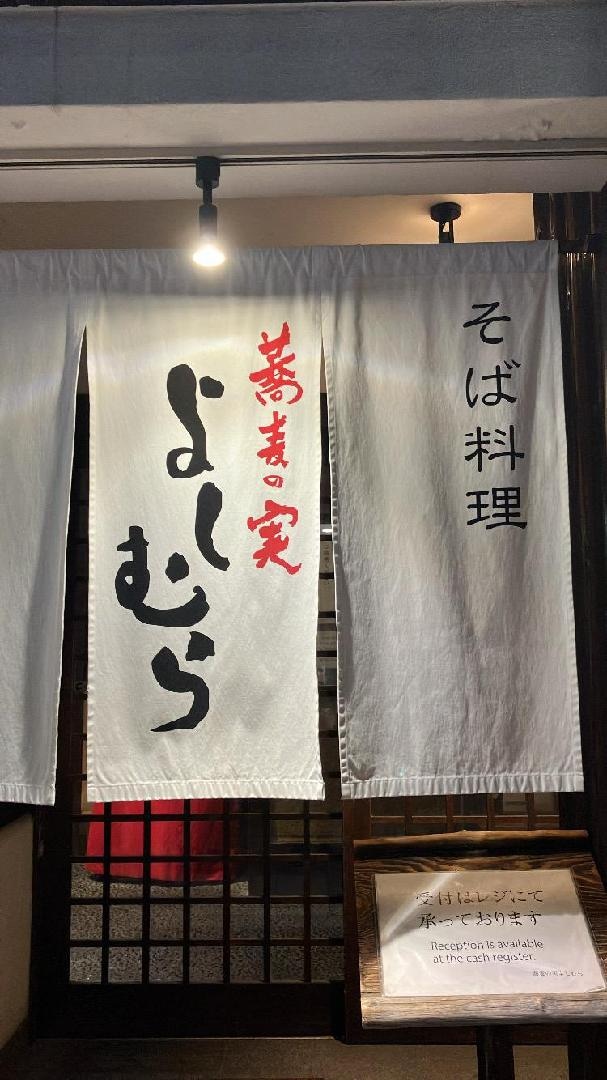 そば料理
蕎麦の実
よしむら
受付はレジにて
承っております
Reception is available
at the cash register.
蕎麦の実よしむら